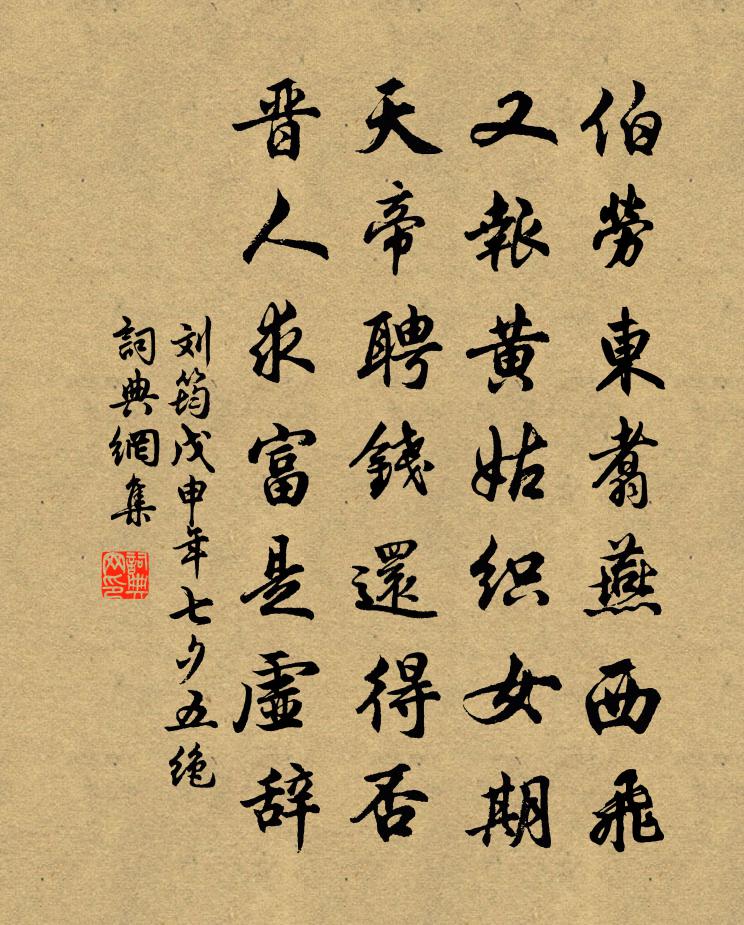 伯勞東翥燕西飛
又報黄姑织女期
天帝聘錢還得否
晋人求富是虚辞
刘筠戊申年七夕五绝
詞典網集
詞典网印